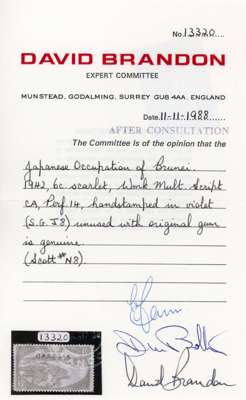 No. 13320
DAVID BRANDON
EXPERT COMMITTEE
MUNSTEAD, GODALMING, SURREY GU8 4AA, ENGLAND
Date 11-11-1988
AFTER CONSULTATION
The Committee Is of the opinion that the
Japanese Occupation of Brunei.
1942, 6c scarlet, Wmk Mult. Script
CA, Perf. 14, handstamped in violet
(S.G. J8) unused with original gum
is genuine.
(Scott # N8).
13320
David Brandon